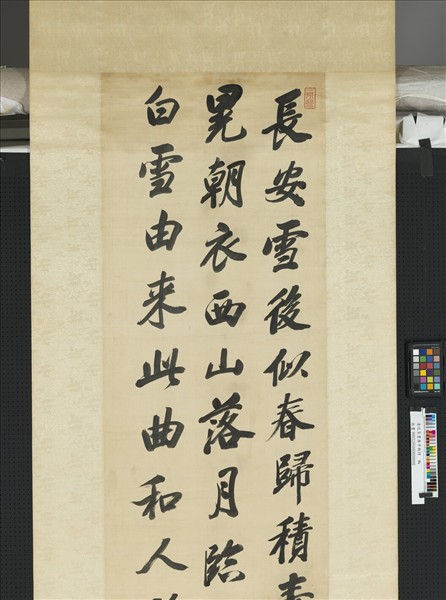 長安雪後似春歸積
晃朝衣西山落月臨
白雪由来此曲和人